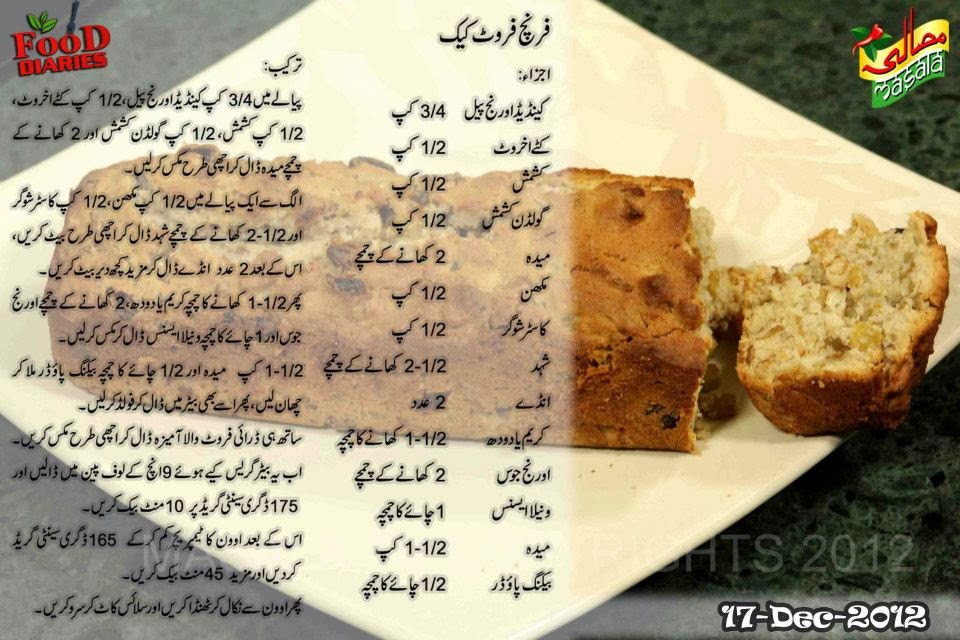 FOOD
DIARIES
مصالہ
masala
فرنچ فروٹ کیک
اجزاء:
کینڈیڈ اورنج پیل 3/4 کپ
کٹے اخروٹ 1/2 کپ
کشمش 1/2 کپ
گولڈن کشمش 1/2 کپ
میدہ 2 کھانے کے چمچے
مکھن 1/2 کپ
کاسٹر شوگر 1/2 کپ
شہد 2-1/2 کھانے کے چمچے
انڈے 2 عدد
کریم یا دودھ 1-1/2 کھانے کا چمچہ
اورنج جوس 2 کھانے کے چمچے
ونیلا ایسنس 1 چائے کا چمچہ
میدہ 1-1/2 کپ
بیکنگ پاؤڈر 1/2 چائے کا چمچہ
ترکیب:
پیالے میں 3/4 کپ کینڈیڈ اورنج پیل، 1/2 کپ کٹے اخروٹ،
1/2 کپ کشمش، 1/2 کپ گولڈن کشمش اور 2 کھانے کے
چمچے میدہ ڈال کر اچھی طرح مکس کرلیں۔
الگ سے ایک پیالے میں 1/2 کپ مکھن، 1/2 کپ کاسٹر شوگر
اور 2-1/2 کھانے کے چمچے شہد ڈال کر اچھی طرح بیٹ کریں،
اس کے بعد 2 عدد انڈے ڈال کر مزید کچھ دیر بیٹ کریں۔
پھر 1-1/2 کھانے کا چمچہ کریم یا دودھ، 2 کھانے کے چمچے اورنج
جوس اور 1 چائے کا چمچہ ونیلا ایسنس ڈال کر مکس کرلیں۔
1-1/2 کپ میدہ اور 1/2 چائے کا چمچہ بیکنگ پاؤڈر ملا کر
چھان لیں، پھر اسے بھی بیٹر میں ڈال کر فولڈ کرلیں۔
ساتھ ہی ڈرائی فروٹ والا آمیزہ ڈال کر اچھی طرح مکس کریں۔
اب یہ بیٹر گریس کیے ہوئے 9 انچ کے لوف پین میں ڈالیں اور
175 ڈگری سینٹی گریڈ پر 10 منٹ بیک کریں۔
اس کے بعد اوون کا ٹمپریچر کم کرکے 165 ڈگری سینٹی گریڈ
کردیں اور مزید 45 منٹ بیک کریں۔
پھر اوون سے نکال کر ٹھنڈا کریں اور سلائس کاٹ کر سرو کریں۔
2012
17-Dec-2012